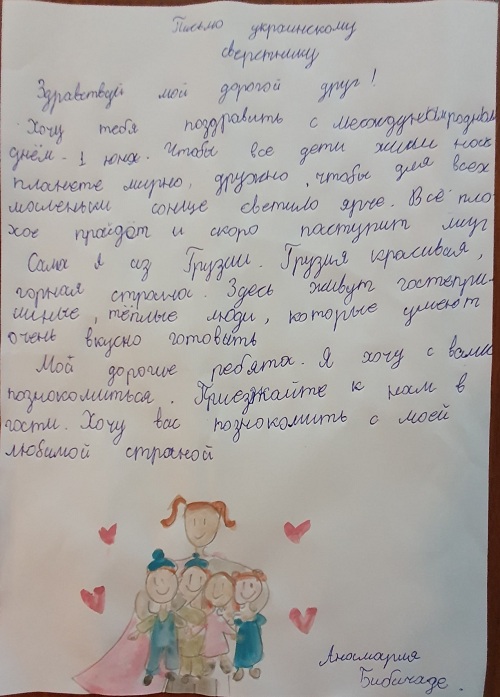 Письмо украинскому
сверстнику
Здравствуй мой дорогой друг!
Хочу тебя поздравить с международным
днём - 1 июня. Чтобы все дети жили на
планете мирно, дружно, чтобы для всех
маленьких солнце светило ярче. Всё пло-
хое пройдёт и скоро наступит мир
Сама я из Грузии. Грузия красивая,
горная страна. Здесь живут гостепри-
имные, тёплые люди, которые умеют
очень вкусно готовить
Мой дорогие ребята. Я хочу с вами
познокомиться. Приезжайте к нам в
гости. Хочу вас познокомить с моей
любимой страной
Анамария